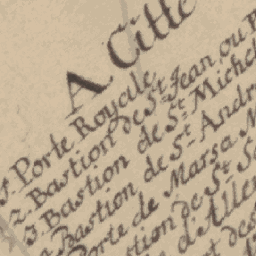 A Citte
1. Porte Royalle
2. Bastion de St. Jean ou
3. Bastion de St. Michel
4. Bastion de St. André
Porte de Marsa
Bastion de St.
d'Alle